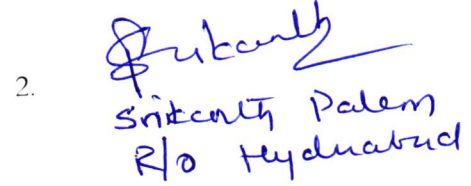 2.
Srikanth
Srikanth Palem
R/o Hyderabad